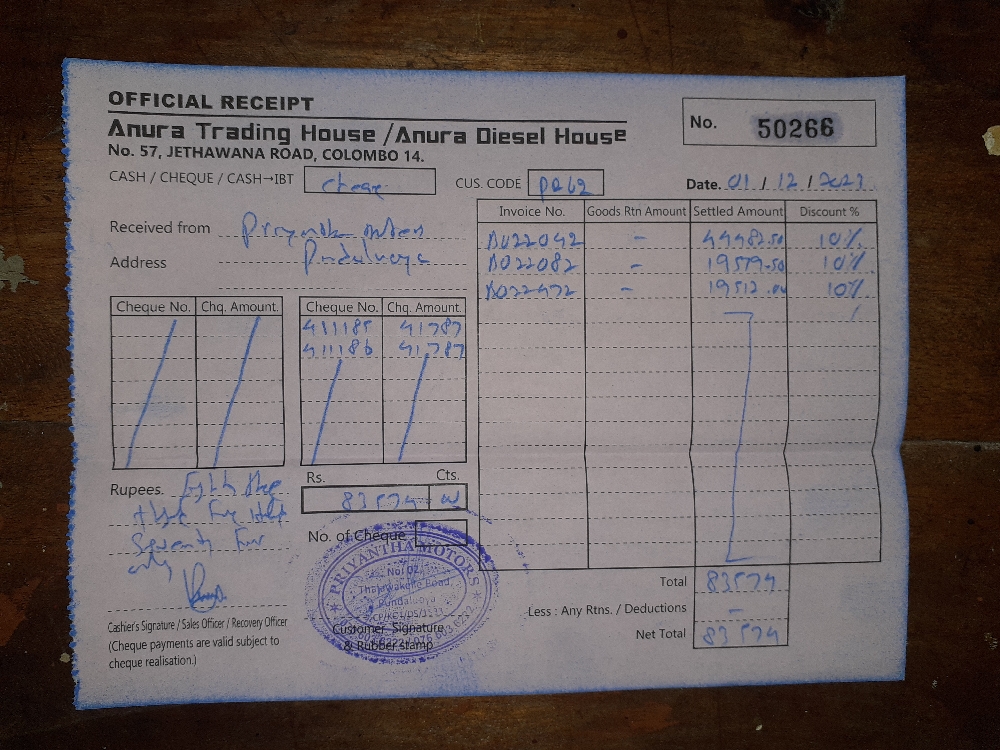 OFFICIAL RECEIPT
Anura Trading House / Anura Diesel House
No. 57, JETHAWANA ROAD, COLOMBO 14.
No. 50266
CASH / CHEQUE / CASH→IBT
CUS. CODE
Date. 01 / 12 / 2023
Received from
Address
Invoice No. Goods Rtn Amount Settled Amount Discount %
A022042 - 44482.50 10%
A022082 - 19579.50 10%
A022472 - 19512.00 10%
Cheque No. Chq. Amount. Cheque No. Chq. Amount.
411185 41787
411186 41787
Rupees.
only
Rs. Cts.
83574
No. of Cheque
PRIYANTHA MOTORS
No. 02,
Thalawakelle Road,
Pundaluoya
Customer Signature
& Rubber stamp
Cashier's Signature / Sales Officer / Recovery Officer
(Cheque payments are valid subject to
cheque realisation.)
Total 83574
Less : Any Rtns. / Deductions -
Net Total 83574